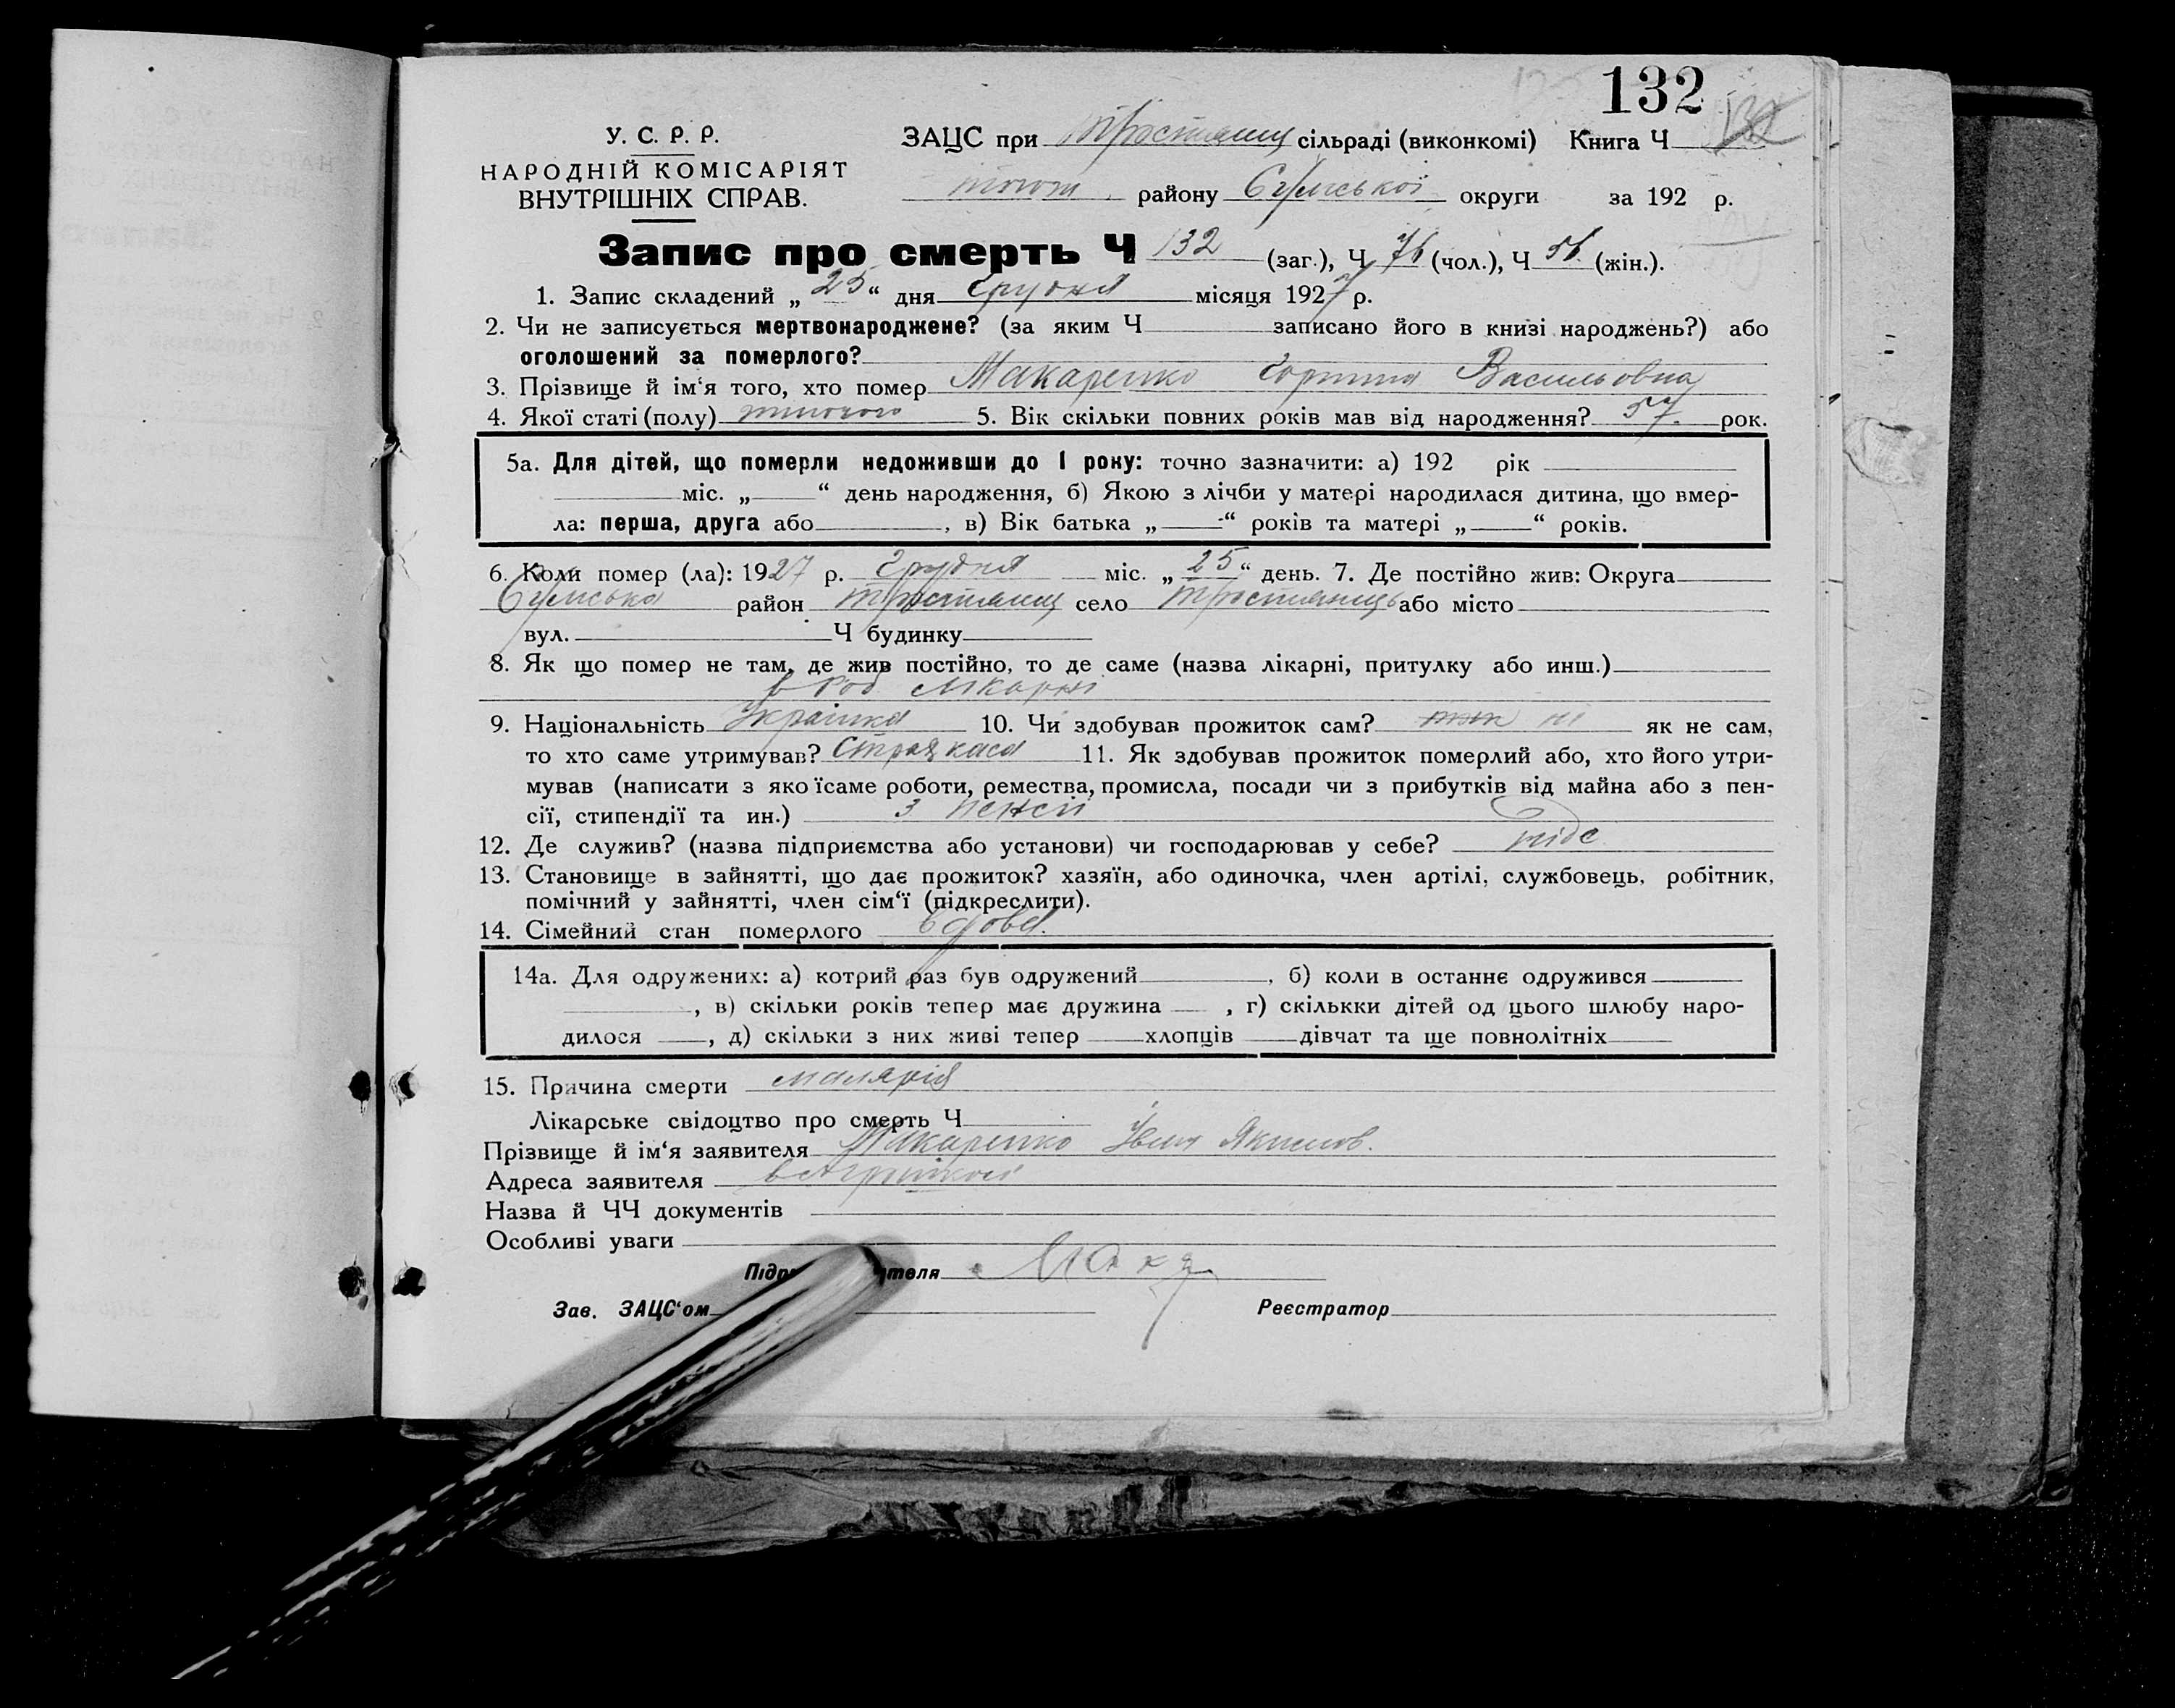 132
У. С. Р. Р.
НАРОДНІЙ КОМІСАРІЯТ
ВНУТРІШНІХ СПРАВ.
ЗАЦС при Тростянец сільраді (виконкомі) Книга Ч 132
району Сумської округи за 192 р.
Запис про смерть Ч 132 (заг.), Ч 76 (чол.), Ч 56 (жін.).
1. Запис складений „ 25 “ дня Грудня місяця 1927 р.
2. Чи не записується мертвонароджене? (за яким Ч записано його в книзі народжень?) або
оголошений за померлого?
3. Прізвище й ім‘я того, хто помер Макаренко Горпина Васильовна
4. Якої статі (полу) жиночого 5. Вік скільки повних років мав від народження? 57 рок.
5а. Для дітей, що померли недоживши до 1 року: точно зазначити: а) 192 рік
міс. „ “ день народження, б) Якою з лічби у матері народилася дитина, що вмер-
ла: перша, друга або , в) Вік батька „ “ років та матері „ “ років.
6. Коли помер (ла): 1927 р. Грудня міс. „ 25 “ день. 7. Де постійно жив: Округа
Сумська район Тростянец село Тростянець або місто
вул. Ч будинку
8. Як що помер не там, де жив постійно, то де саме (назва лікарні, притулку або инш.)
в Роб лікарні
9. Національність Українка 10. Чи здобував прожиток сам? ні як не сам,
то хто саме утримував? Страхкаса 11. Як здобував прожиток померлий або, хто його утри-
мував (написати з яко їсаме роботи, ремества, промисла, посади чи з прибутків від майна або з пен-
сії, стипендії та ин.) з пенсії
12. Де служив? (назва підприємства або установи) чи господарював у себе? ніде
13. Становище в зайнятті, що дає прожиток? хазяїн, або одиночка, член артілі, службовець, робітник,
помічний у зайнятті, член сім‘ї (підкреслити).
14. Сімейний стан померлого вдова.
14а. Для одружених: а) котрий раз був одружений , б) коли в останнє одружився
, в) скільки років тепер має дружина , г) скількки дітей од цього шлюбу наро-
дилося , д) скільки з них живі тепер хлопців дівчат та ще повнолітніх
15. Причина смерти малярія
Лікарське свідоцтво про смерть Ч
Прізвище й ім‘я заявителя Макаренко Іван Якимов.
Адреса заявителя
Назва й ЧЧ документів
Особливі уваги
Зав. ЗАЦС‘ом Реєстратор